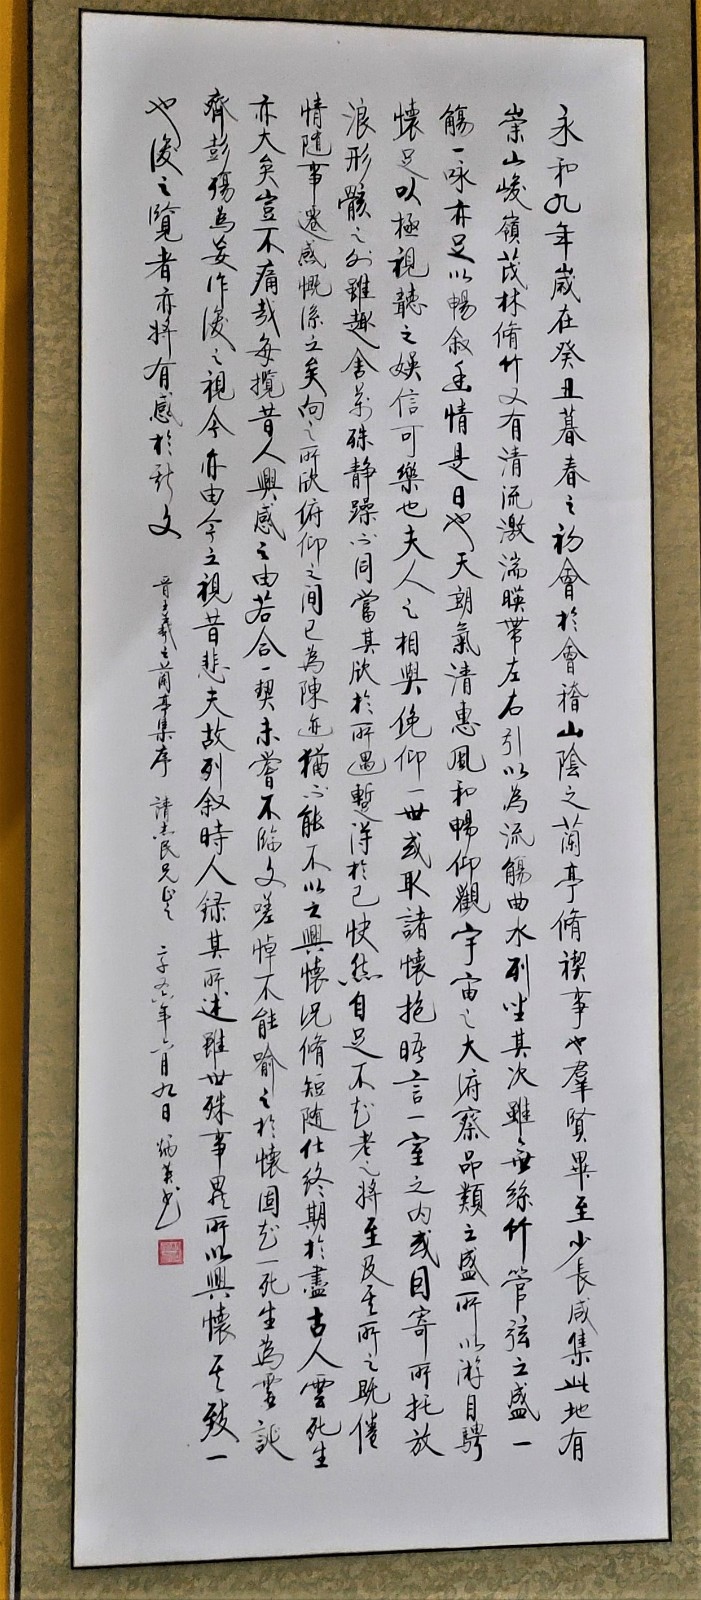 永和九年歲在癸丑暮春之初會於會稽山陰之蘭亭脩禊事也羣賢畢至少長咸集此地有
崇山峻嶺茂林脩竹又有清流激湍暎帶左右引以為流觴曲水列坐其次雖無絲竹管弦之盛一
觴一咏亦足以暢敘幽情是日也天朗氣清惠風和暢仰觀宇宙之大府察品類之盛所以游目騁
懷足以極視聽之娛信可樂也夫人之相與俛仰一世或取諸懷抱晤言一室之內或因寄所托放
浪形骸之外雖趣舍萬殊静躁不同當其欣於所遇蹔得於己快然自足不知老之將至及其所之既倦
情隨事遷感慨係之矣向之所欣俯仰之間已為陳迹猶不能不以之興懷況脩短隨化終期於盡古人雲死生
亦大矣豈不痛哉每攬昔人興感之由若合一契未嘗不臨文嗟悼不能喻之於懷固知一死生為虛誕
齊彭殤為妄作後之視今亦由今之視昔悲夫故列敘時人録其所述雖世殊事異所以興懷其致一
也後之覽者亦將有感於斯文
晋王羲之蘭亭集序 請志民兄正之 年六月九日 炳英書